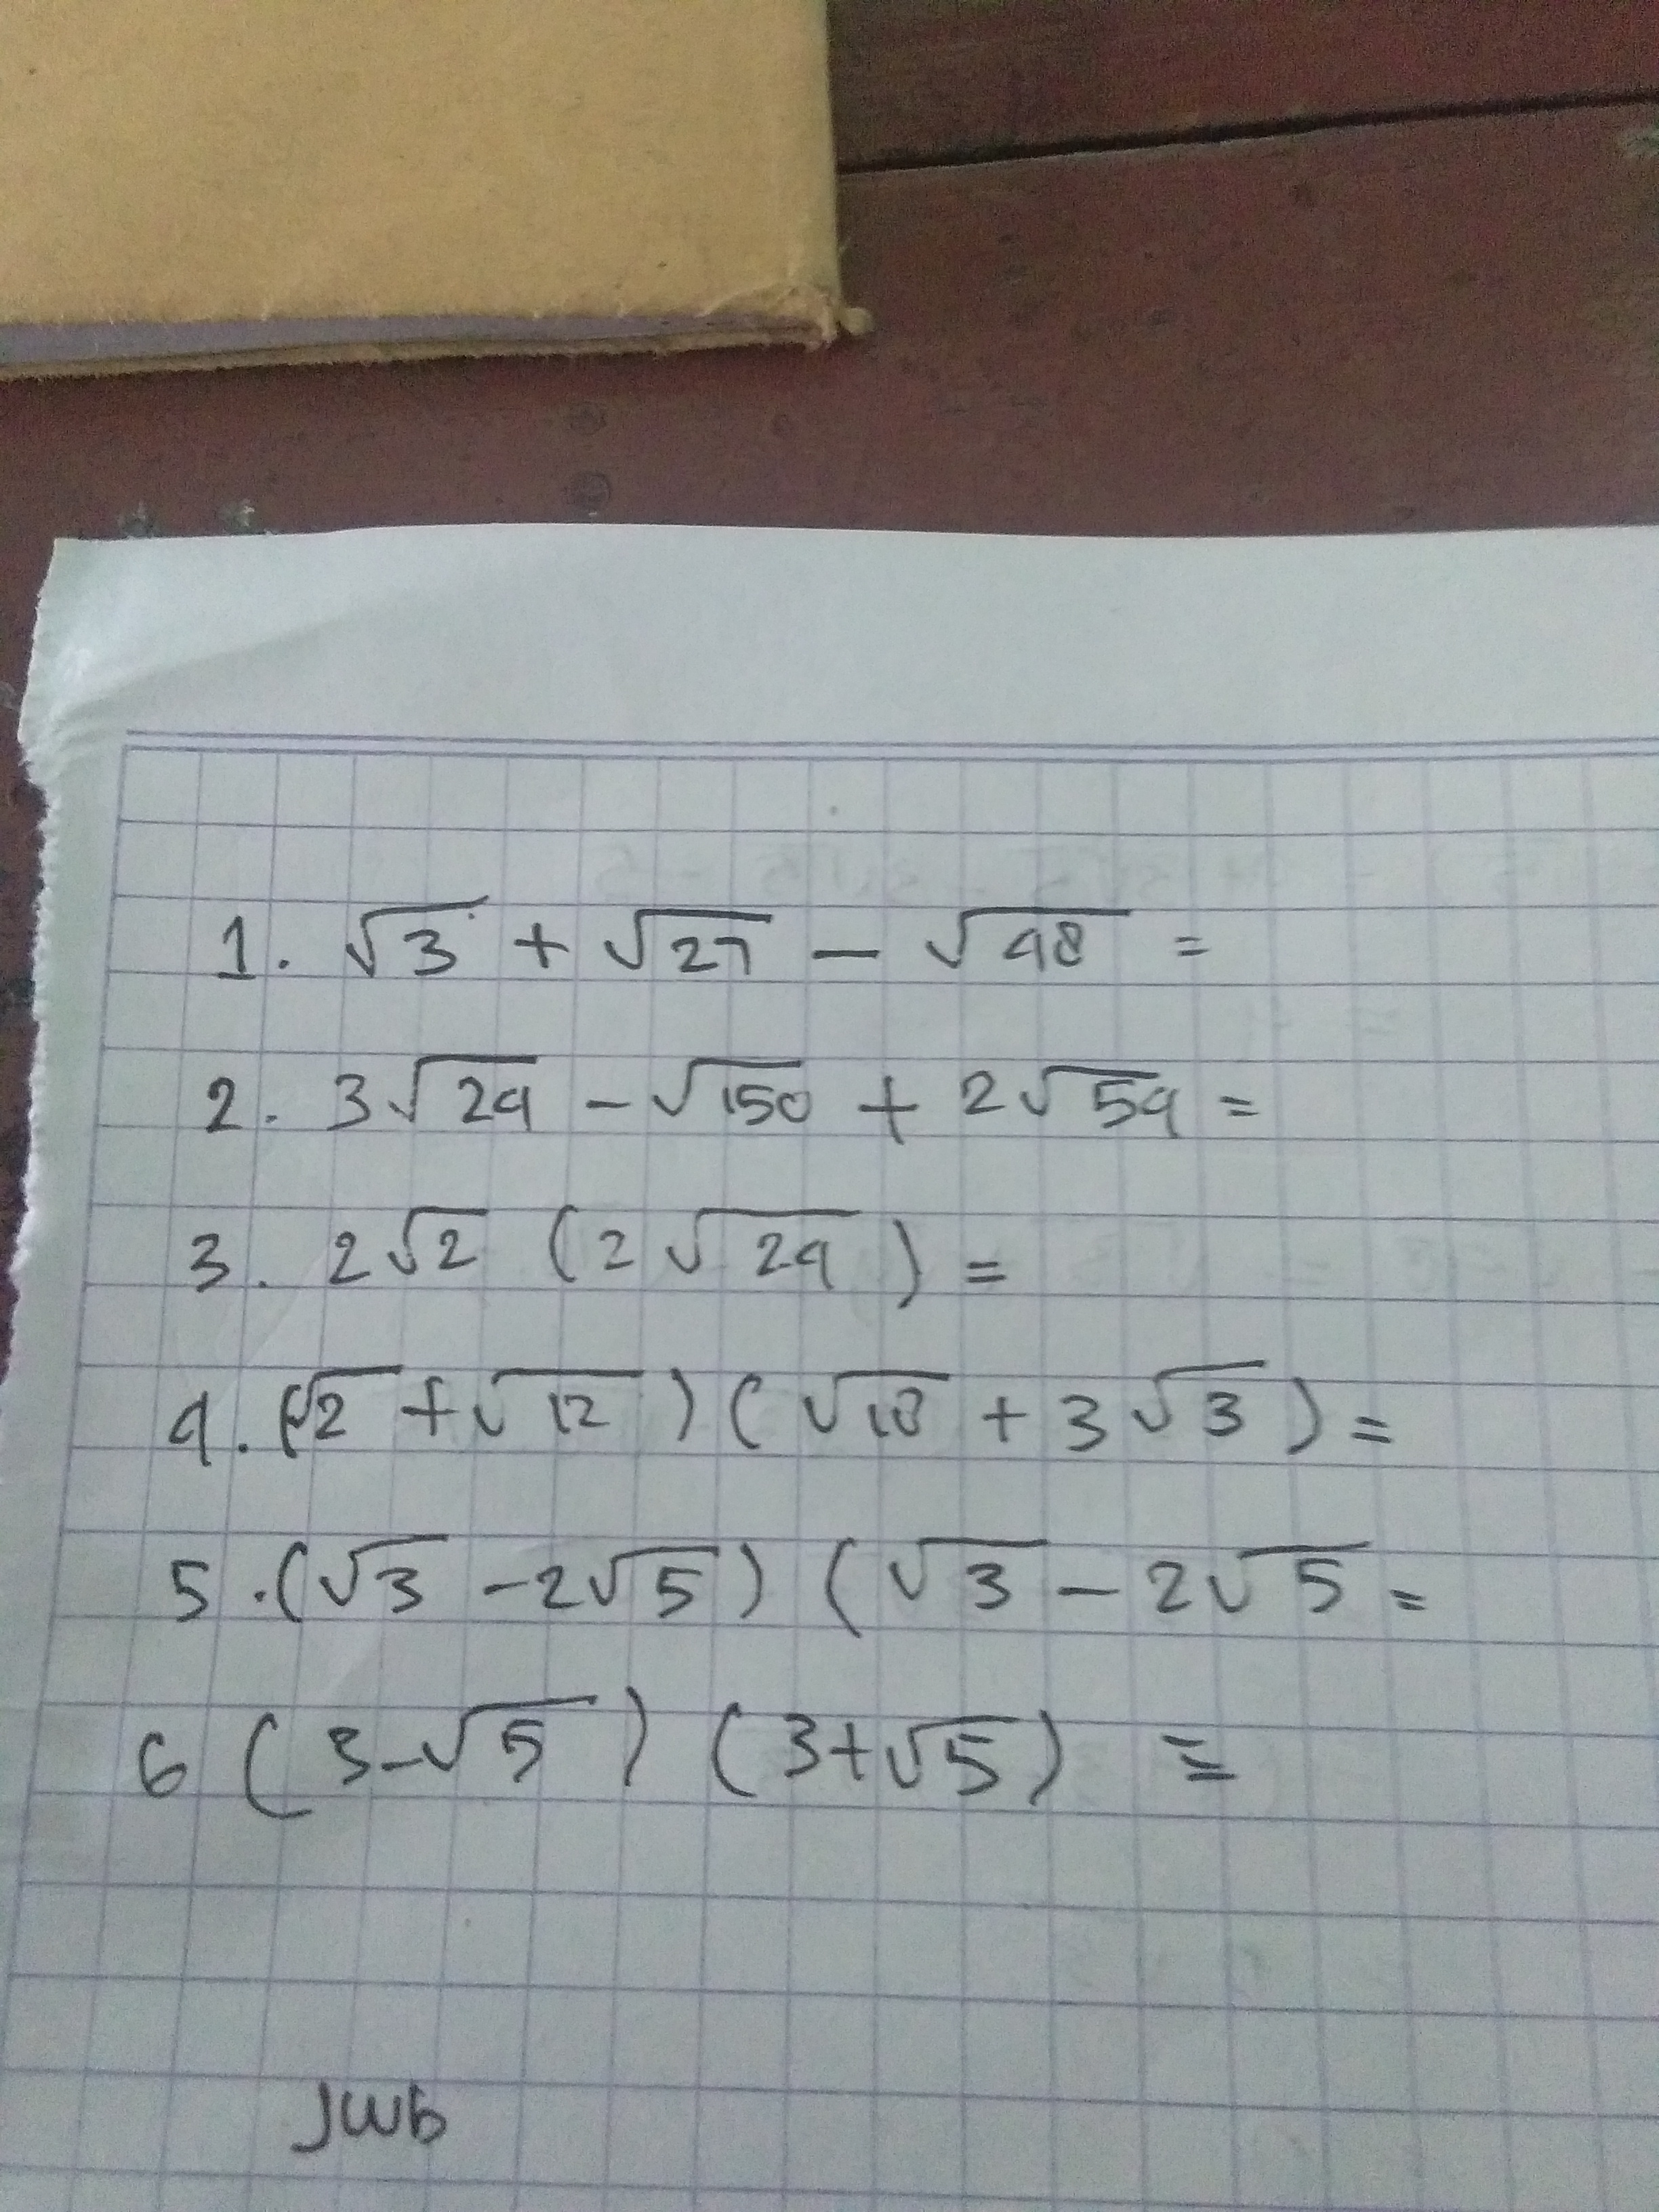 1. √3 + √27 - √48 =
2. 3√24 - √150 + 2√54 =
3. 2√2 (2√24) =
4. (√2 + √12) (√18 + 3√3) =
5. (√3 - 2√5) (√3 - 2√5 =
6 (3-√5) (3+√5) =
Jwb